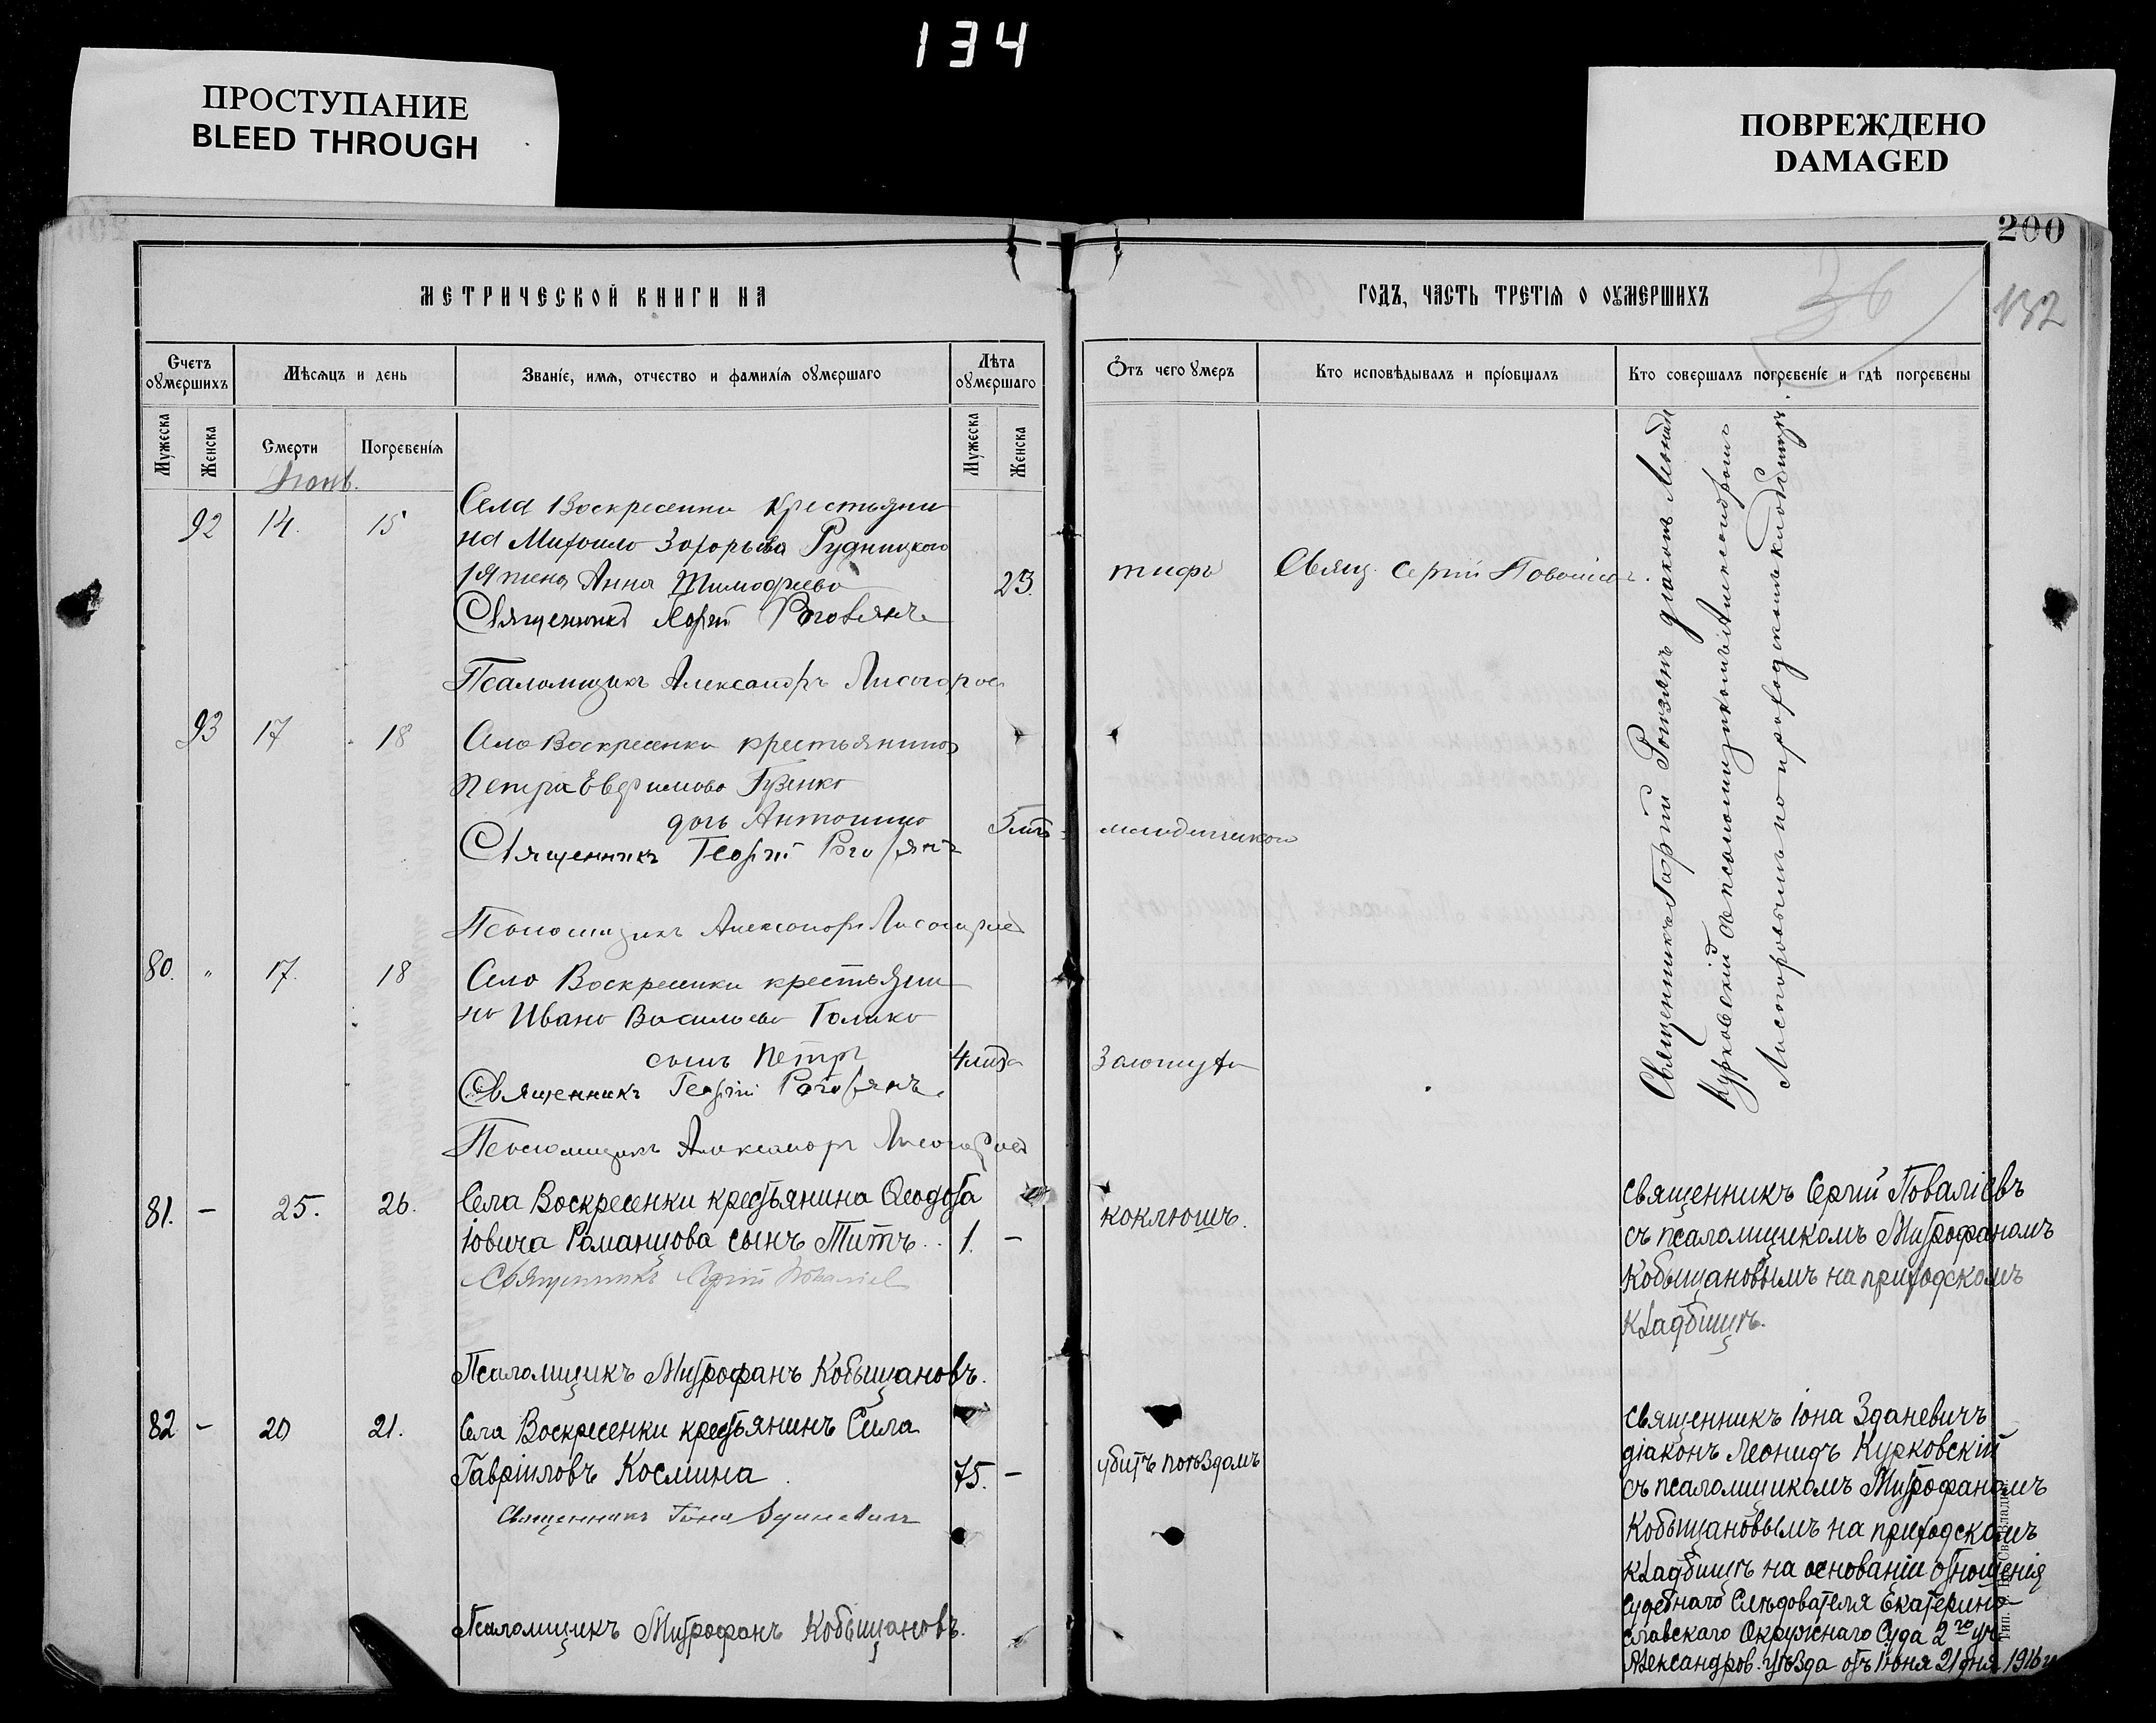 134
ПРОСТУПАНИЕ
BLEED THROUGH
ПОВРЕЖДЕНО
DAMAGED
200
132
36
МЕТРИЧЕСКОЙ КНИГИ НА
ГОДЪ, ЧАСТЬ ТРЕТІЯ О ОУМЕРШИХЪ
Счетъ оумершихъ
Мѣсяцъ и день
Званіе, имя, отчество и фамилія оумершаго
Лѣта оумершаго
Отъ чего умеръ
Кто исповѣдывалъ и пріобщалъ
Кто совершалъ погребеніе и гдѣ погребены
Мужеска
Женска
Смерти
Погребенія
Мужеска
Женска
92 14. 15
Села Воскресенки крестьяни
на Михаила Захарьева Рудницкого
жена Анна Тимофеева
23.
тифъ
Свящ. Сергій
Священникъ
Псаломщикъ Александръ
93 17 18
Села Воскресенки крестьянина
Петра Евфимова Гузенко
дочь Антонина
5 лѣтъ
Священникъ Георгій
Псаломщикъ Александръ
80. " 17. 18
Села Воскресенки крестьяни
на Ивана Васильева
сынъ Петръ
4 года
Золотуха
Священникъ Георгій
Псаломщикъ Александръ
Священникъ Георгій діаконъ Леонидъ
Курковскій съ псаломщикомъ Александромъ
Лисогоровымъ на приходскомъ кладбищѣ.
81. — 25. 26.
Села Воскресенки крестьянина Ѳеодота
Іовича Романцова сынъ Титъ. . 1. —
коклюшъ.
Священникъ Сергій Поваліевъ
Псаломщикъ Митрофанъ Кобыщановъ.
священникъ Сергій Поваліевъ
съ псаломщикомъ Митрофаномъ
Кобыщановымъ на приходскомъ
кладбищѣ.
82 — 20 21.
Села Воскресенки крестьянинъ Сила
Гавріиловъ Космина 75. —
убитъ поѣздомъ
Священникъ Іона Зданевичъ
Псаломщикъ Митрофанъ Кобыщановъ.
священникъ Іона Зданевичъ
діаконъ Леонидъ Курковскій
съ псаломщикомъ Митрофаномъ
Кобыщановымъ на приходскомъ
кладбищѣ на основаніи отношенія
Судебнаго Слѣдователя Екатерино-
славскаго Окружнаго Суда 2го уч.
Александров. уѣзда отъ Іюня 21 дня 1916 г.